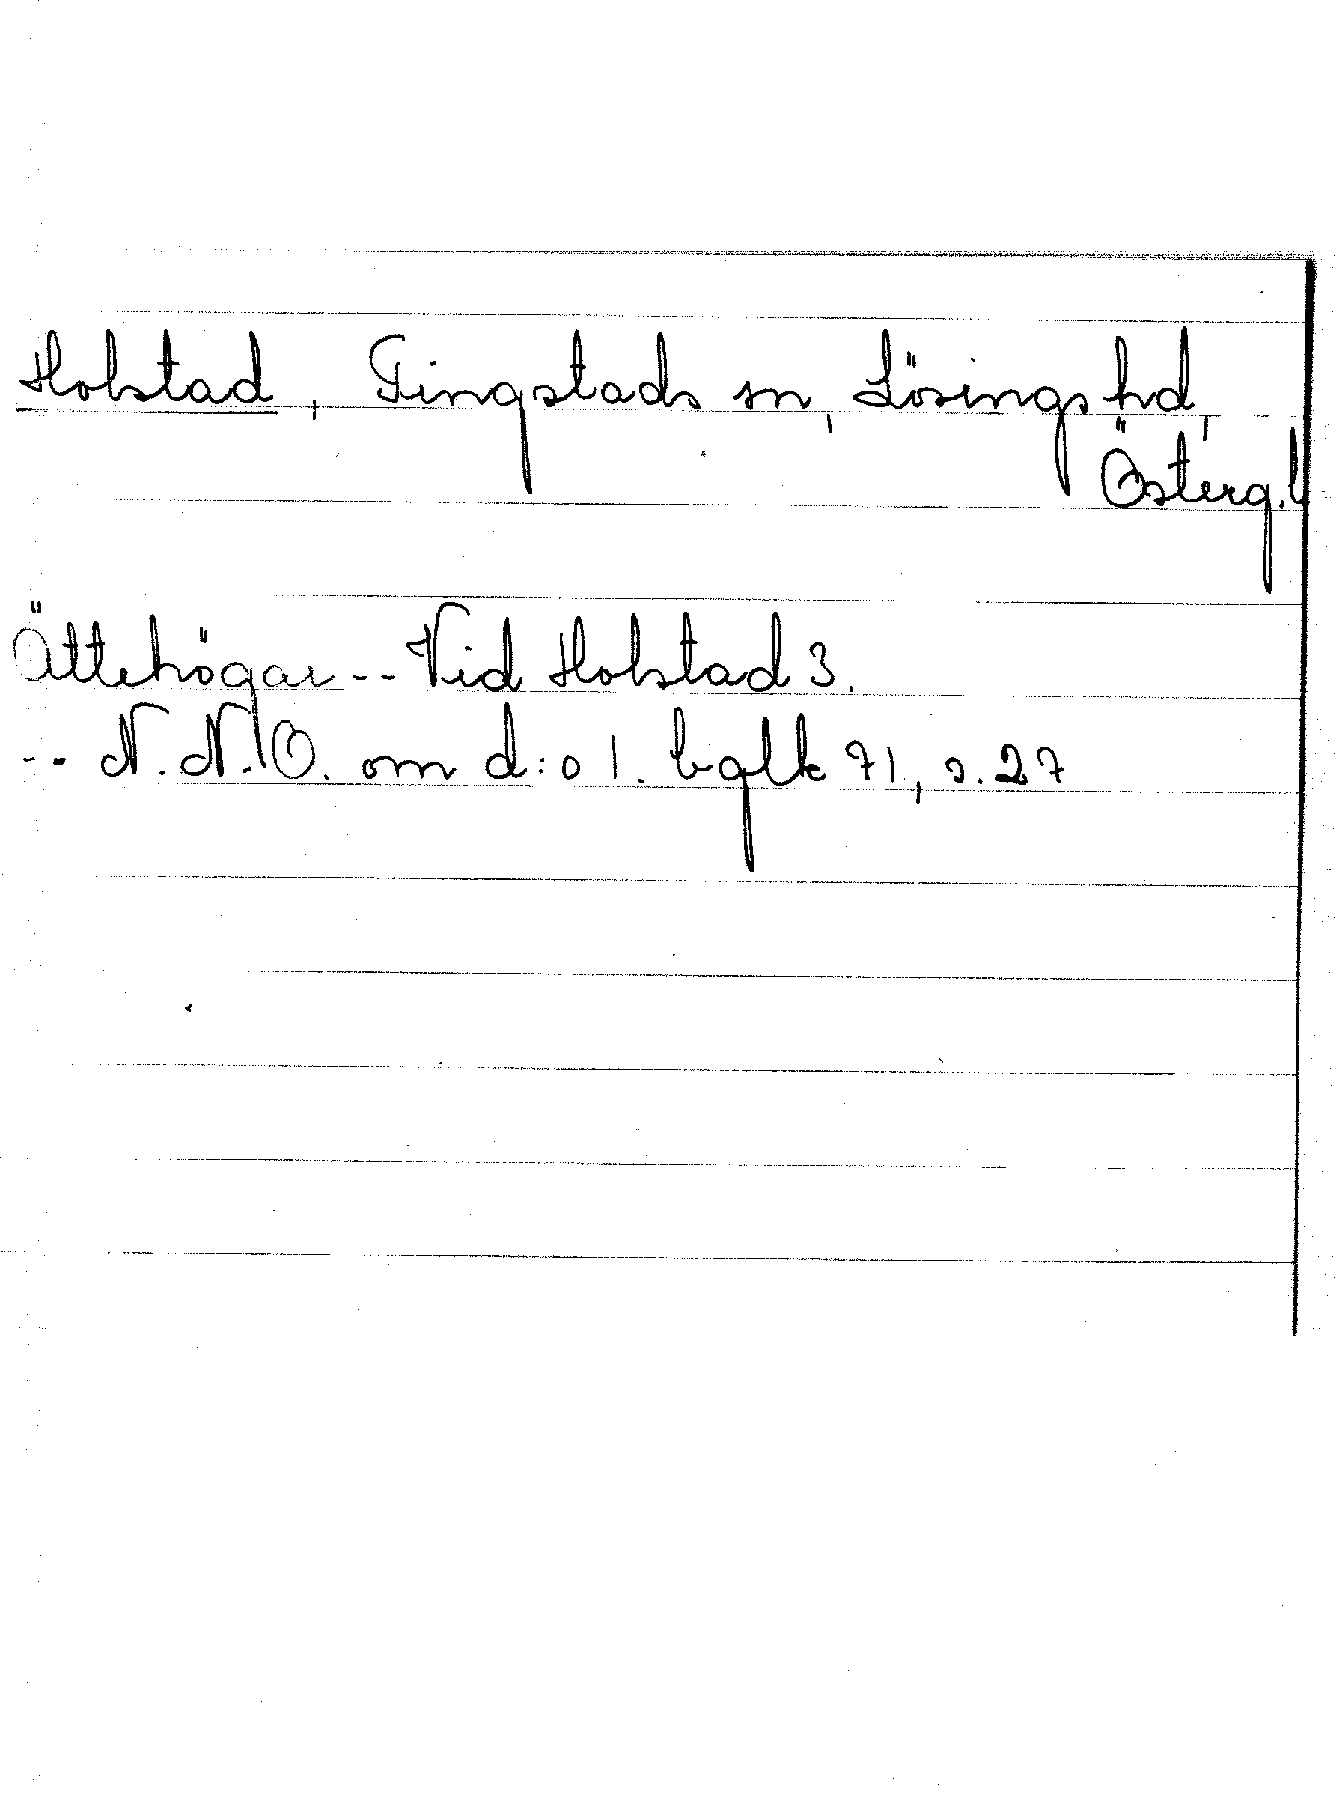 Holstad, Tingstads sn, Lösings hd,
Österg.l
Ättehögar -- Vid Holstad 3.
-- N.N.O. om d:o 1. bglk 71, s. 27